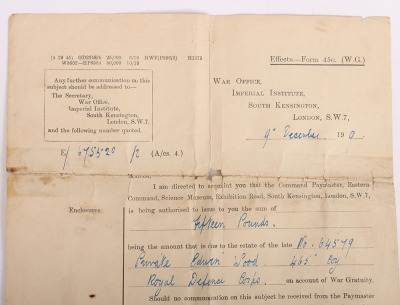 Effects—Form 45c. (W.G.)
Any further communication on this
subject should be addressed to—
The Secretary,
War Office,
Imperial Institute,
South Kensington,
London, S.W.7,
and the following number quoted.
War Office,
Imperial Institute,
South Kensington,
London, S.W.7,
9th December 19
E/ 675520 /2 (A/cs. 4.)
I am directed to acquaint you that the Command Paymaster, Eastern
Command, Science Museum, Exhibition Road, South Kensington, London, S.W.7,
Enclosure.
is being authorised to issue to you the sum of
Fifteen Pounds.
being the amount that is due to the estate of the late No. 64579
Private Edwin Wood 465 Coy
Royal Defence Corps. on account of War Gratuity.
Should no communication on this subject be received from the Paymaster